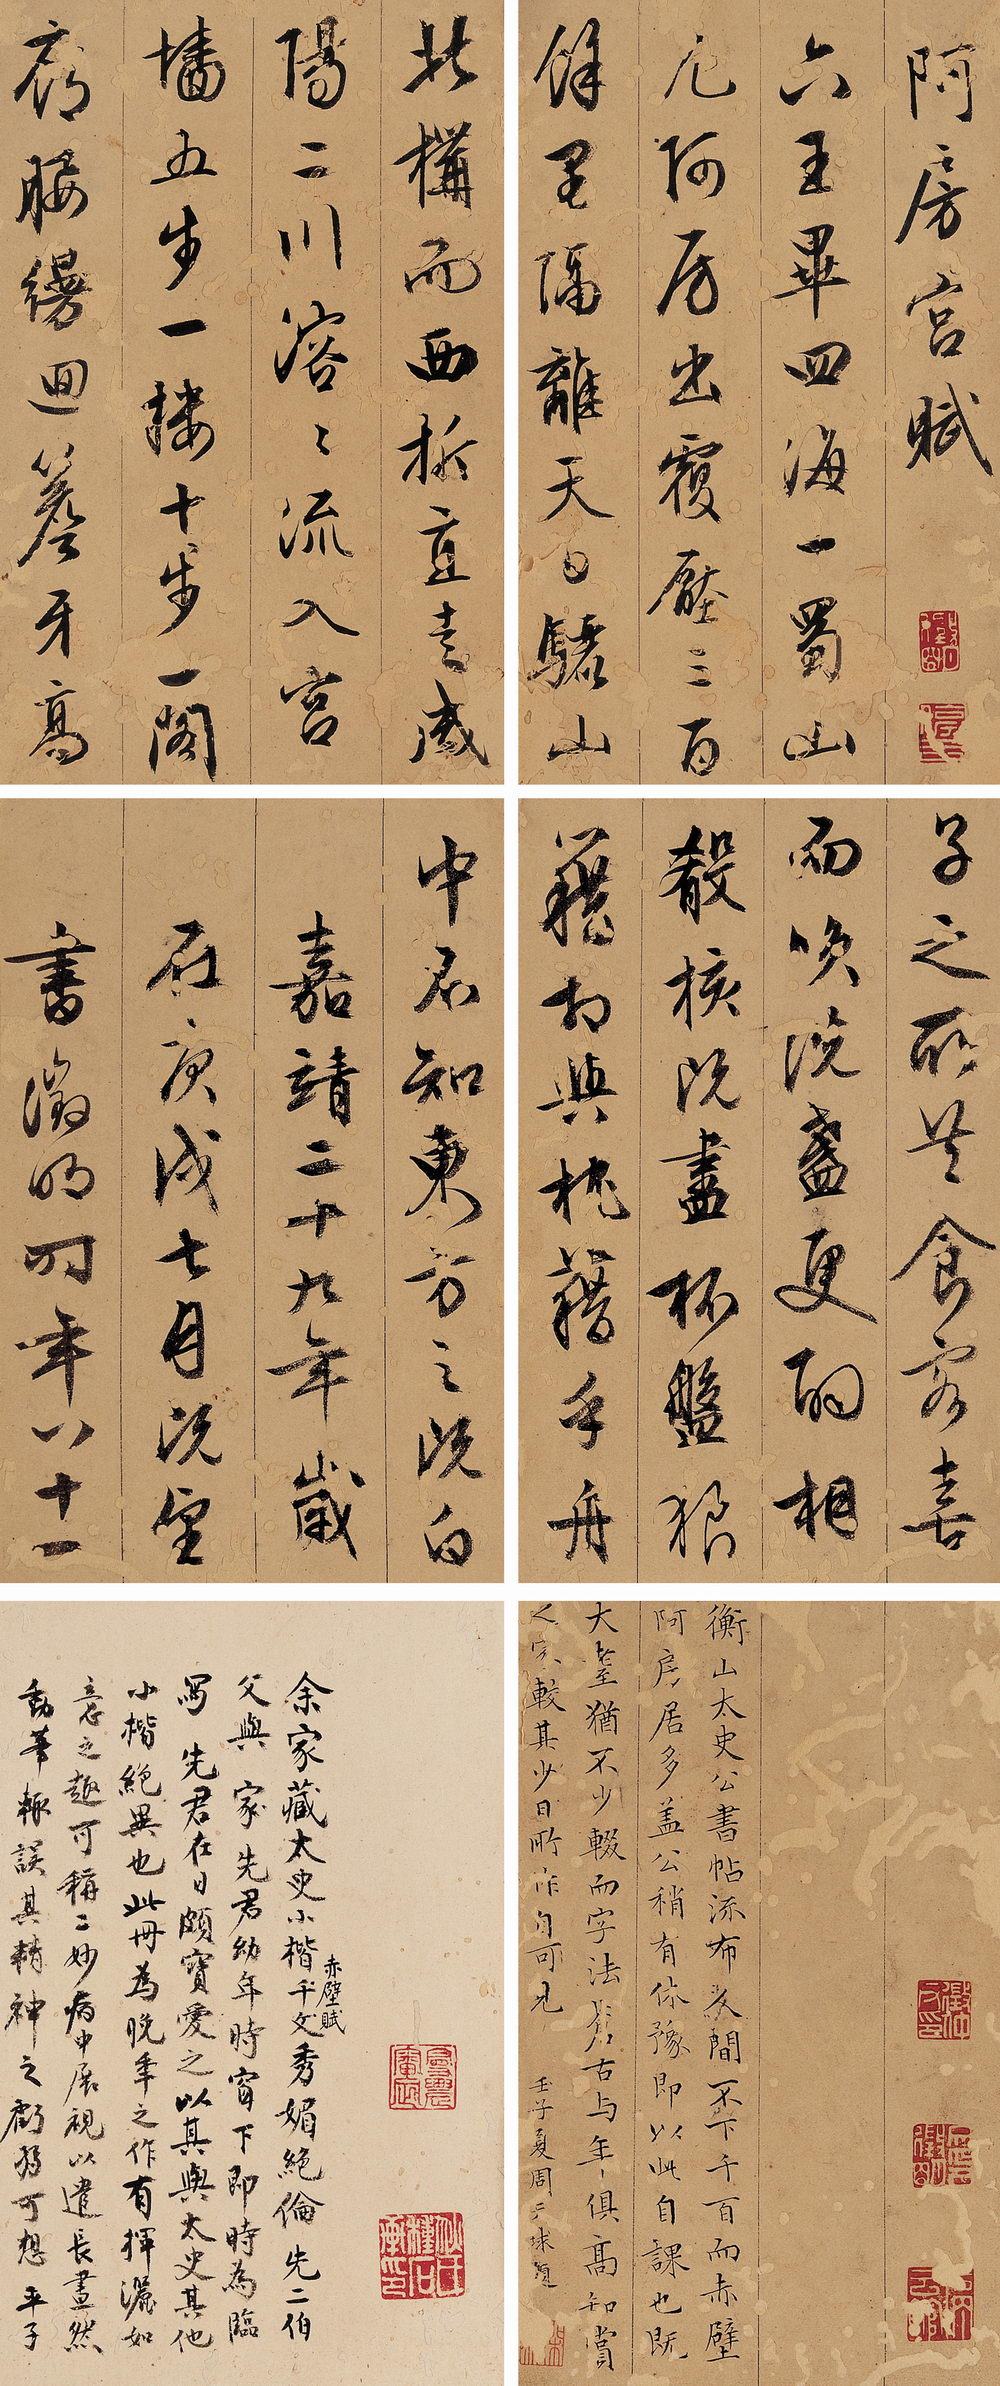 阿房宮賦
六王畢四海一蜀山
兀阿房出覆壓三百
餘里隔離天日驪山
北構而西折直走咸
陽二川溶〻流入宮
墻五步一樓十步一閣
廊腰縵迴簷牙高
子之所共食客喜
而笑洗盞更酌相
殽核既盡杯盤狼
藉相與枕藉乎舟
中不知東方之既白
嘉靖二十九年歲
在庚戌七月既望
書徵明時年八十一
衡山太史公書帖流布人間不下千百而赤壁
阿房居多蓋公稍有休豫即以此自課也既
大耋猶不少輟而字法蒼古与年俱高知賞
之家較其少日所作自可見
壬子夏周天球題
余家藏太史小楷千文秀媚絕倫先二伯
赤壁賦
父與家先君幼年時窗下即時為臨
寫先君在日頗寶愛之以其與太史其他
小楷絕異也此冊為晚年之作有揮灑如
意之趣可稱二妙病中展視以遣長晝然
動筆輒誤其精神之頹弱可想平子